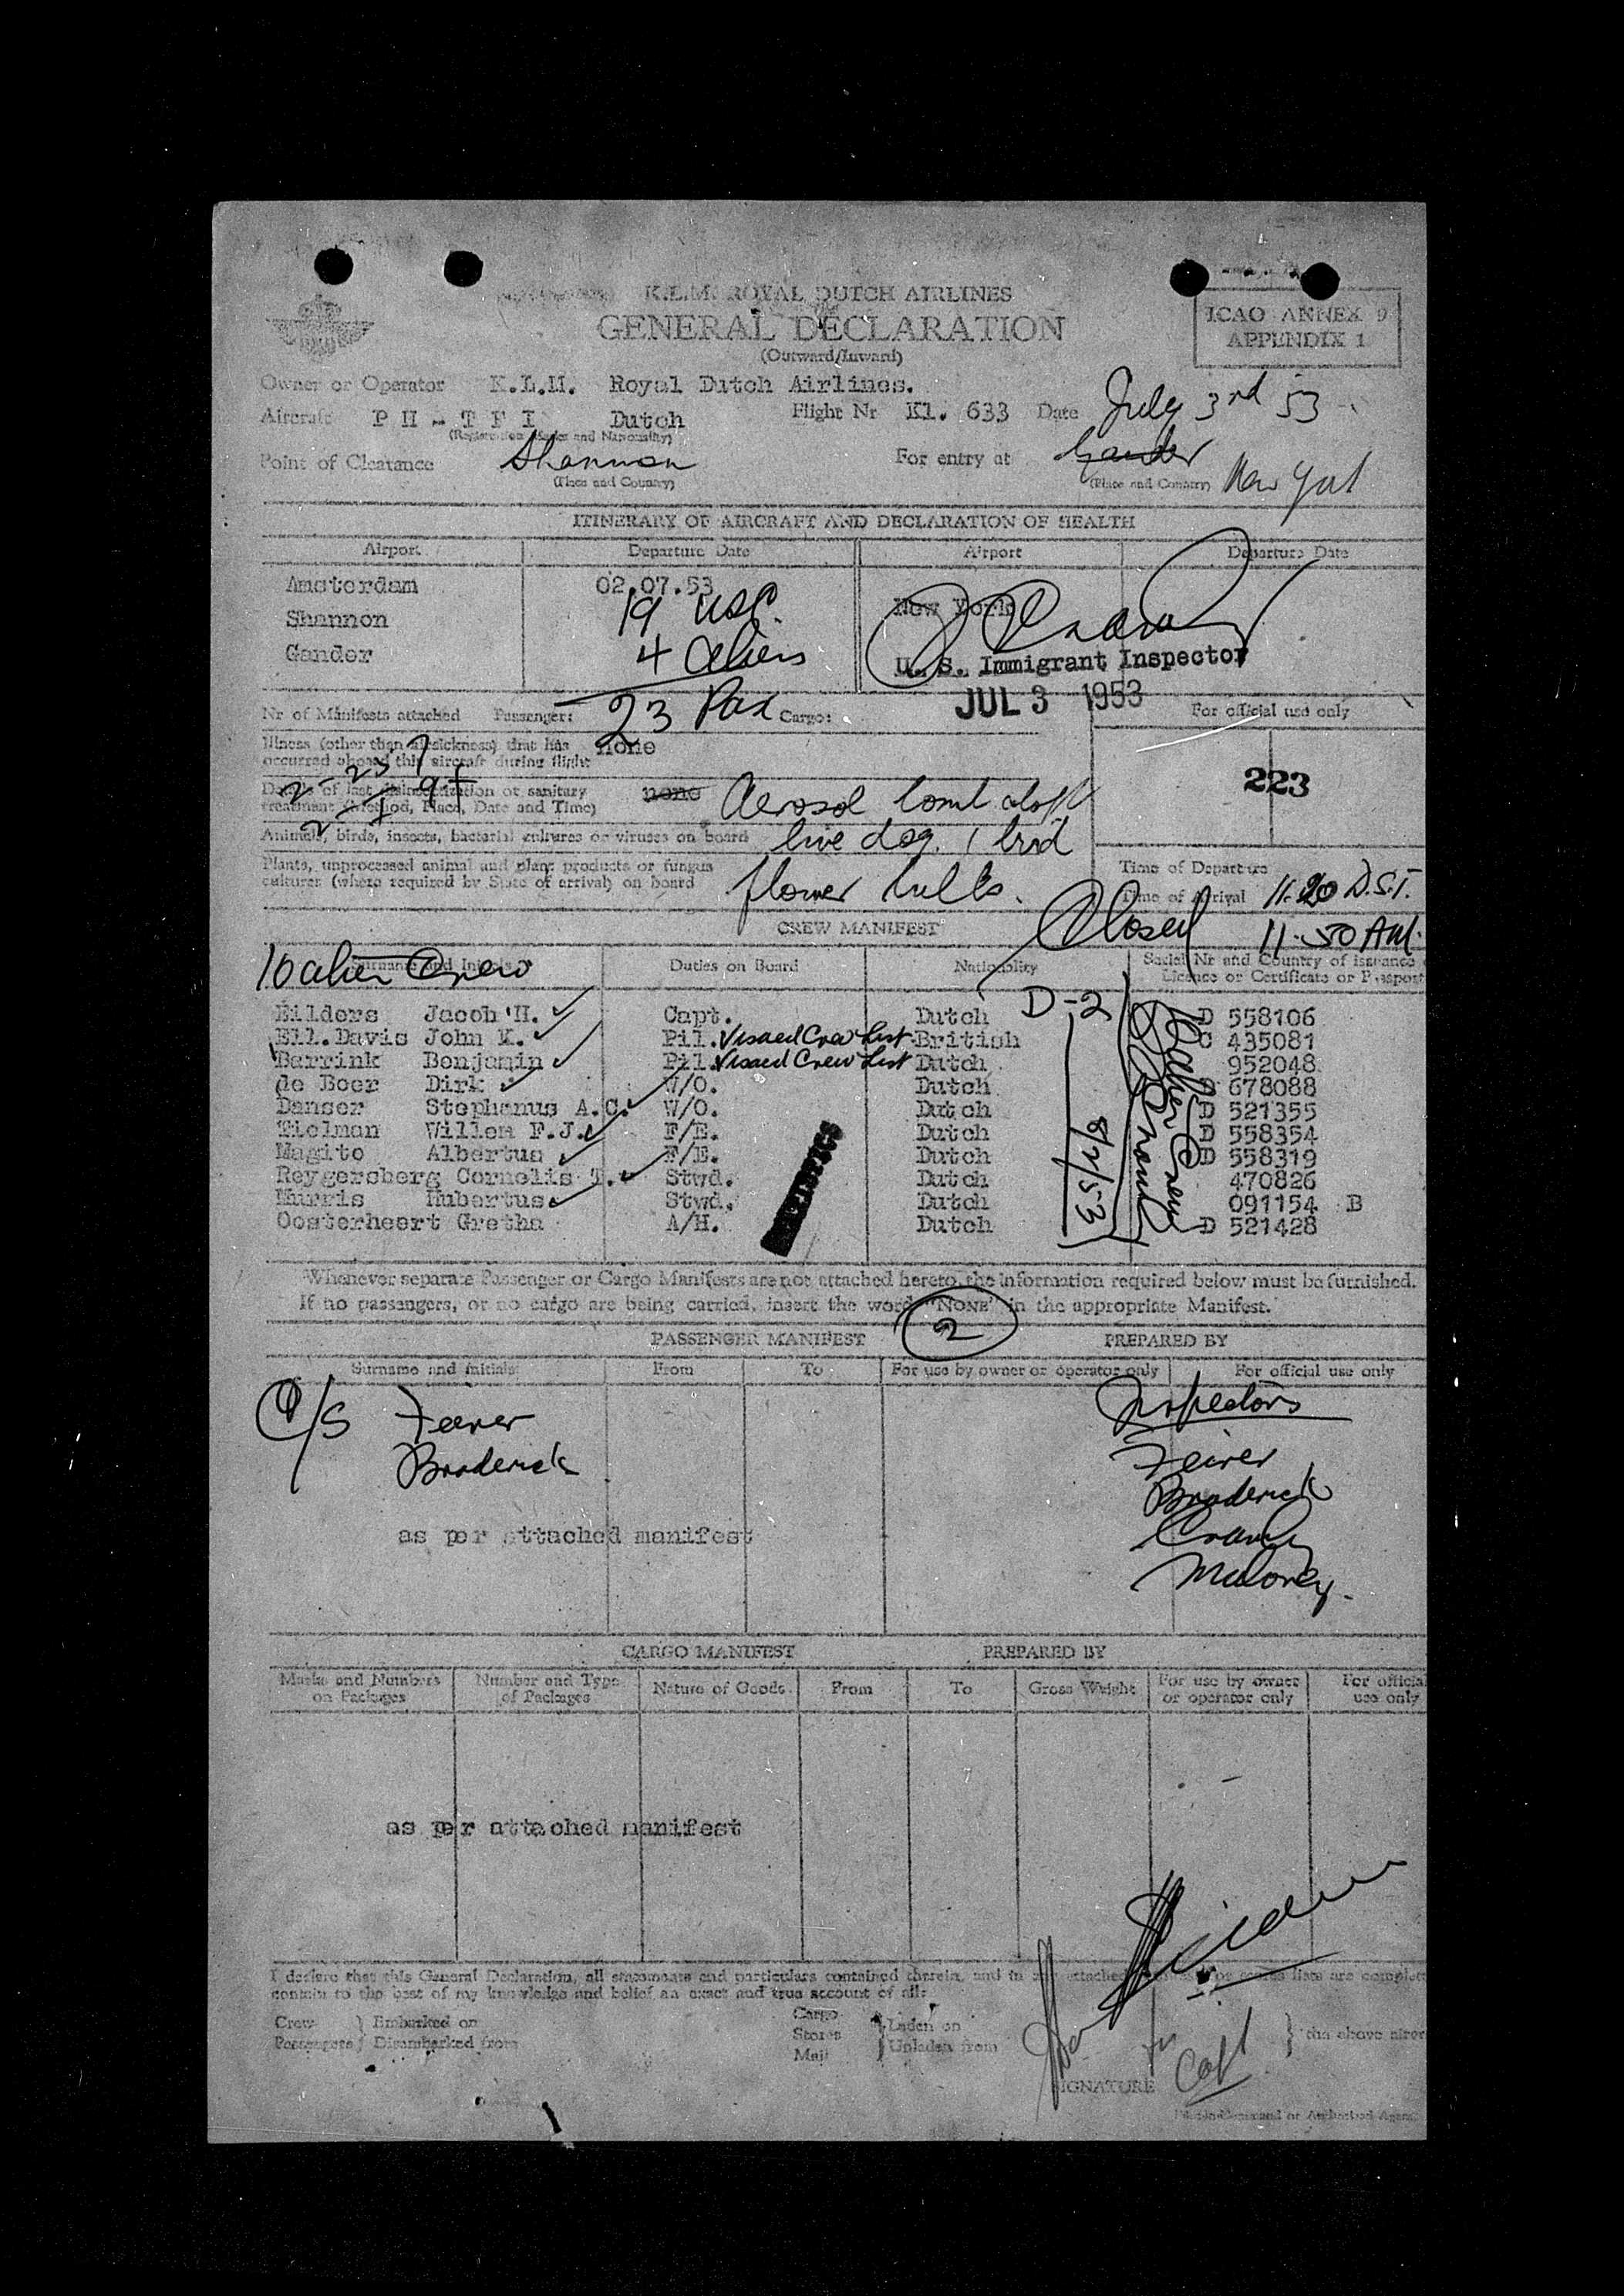 K.L.M. ROYAL DUTCH AIRLINES
GENERAL DECLARATION
(Outward/Inward)
ICAO ANNEX 9
APPENDIX 1
Owner or Operator K.L.M. Royal Dutch Airlines.
Aircraft PH - TFI Dutch Flight Nr Kl. 633 Date July 3rd 53
(Registration Marks and Nationality)
Point of Clearance Shannon For entry at Gander New York
(Place and Country) (Place and Country)
ITINERARY OF AIRCRAFT AND DECLARATION OF HEALTH
Airport Departure Date Airport Departure Date
Amsterdam 02.07.53 New York
Shannon 19 USC.
Gander 4 Aliens
U. S. Immigrant Inspector
JUL 3 1953
Nr of Manifests attached Passenger: 23 Pax Cargo: For official use only
Illness (other than airsickness) that has none
occurred aboard this aircraft during flight
223
Details of last disinsectization or sanitary none Aerosol bomb aloft
treatment (Method, Place, Date and Time)
Animals, birds, insects, bacterial cultures or viruses on board live dog. 1 bird
Plants, unprocessed animal and plant products or fungus flower bulbs.
cultures (where required by State of arrival) on board
Time of Departure
Time of Arrival 11.20 D.S.T.
CREW MANIFEST Closed 11.50 AM.
10 alien Crew
Surname and Initials Duties on Board Nationality Serial Nr and Country of issuance
Licence or Certificate or Passport
Eilders Jacob H. Capt. Dutch D-2 D 558106
Ell.Davis John K. Pil. Visaed Crew List British C 435081
Barrink Benjamin Pil. Visaed Crew List Dutch 952048
de Boer Dirk W/O. Dutch 678088
Danser Stephanus A.C. W/O. Dutch D 521355
Tielman Willem F.J. F/E. Dutch D 558354
Magito Albertus F/E. Dutch D 558319
Reygersberg Cornelis T. Stwd. Dutch 470826
Murris Hubertus Stwd. Dutch 091154 B
Oosterheert Gretha A/H. Dutch D 521428
Whenever separate Passenger or Cargo Manifests are not attached hereto, the information required below must be furnished.
If no passengers, or no cargo are being carried, insert the word "NONE" in the appropriate Manifest.
2
PASSENGER MANIFEST PREPARED BY
Surname and initials From To For use by owner or operator only For official use only
C/S Feirer Inspectors
Broderick Feirer
Broderick
as per attached manifest
Maloney.
CARGO MANIFEST PREPARED BY
Marks and Numbers on Packages Number and Type of Packages Nature of Goods From To Gross Weight For use by owner or operator only For official use only
as per attached manifest
I declare that this General Declaration, all statements and particulars contained therein, and in any attached lists are complete
contain to the best of my knowledge and belief an exact and true account of all:
Crew } Embarked on Cargo
Passengers } Disembarked from Stores } Laden on
Mail } Unladen from } the above
SIGNATURE Capt